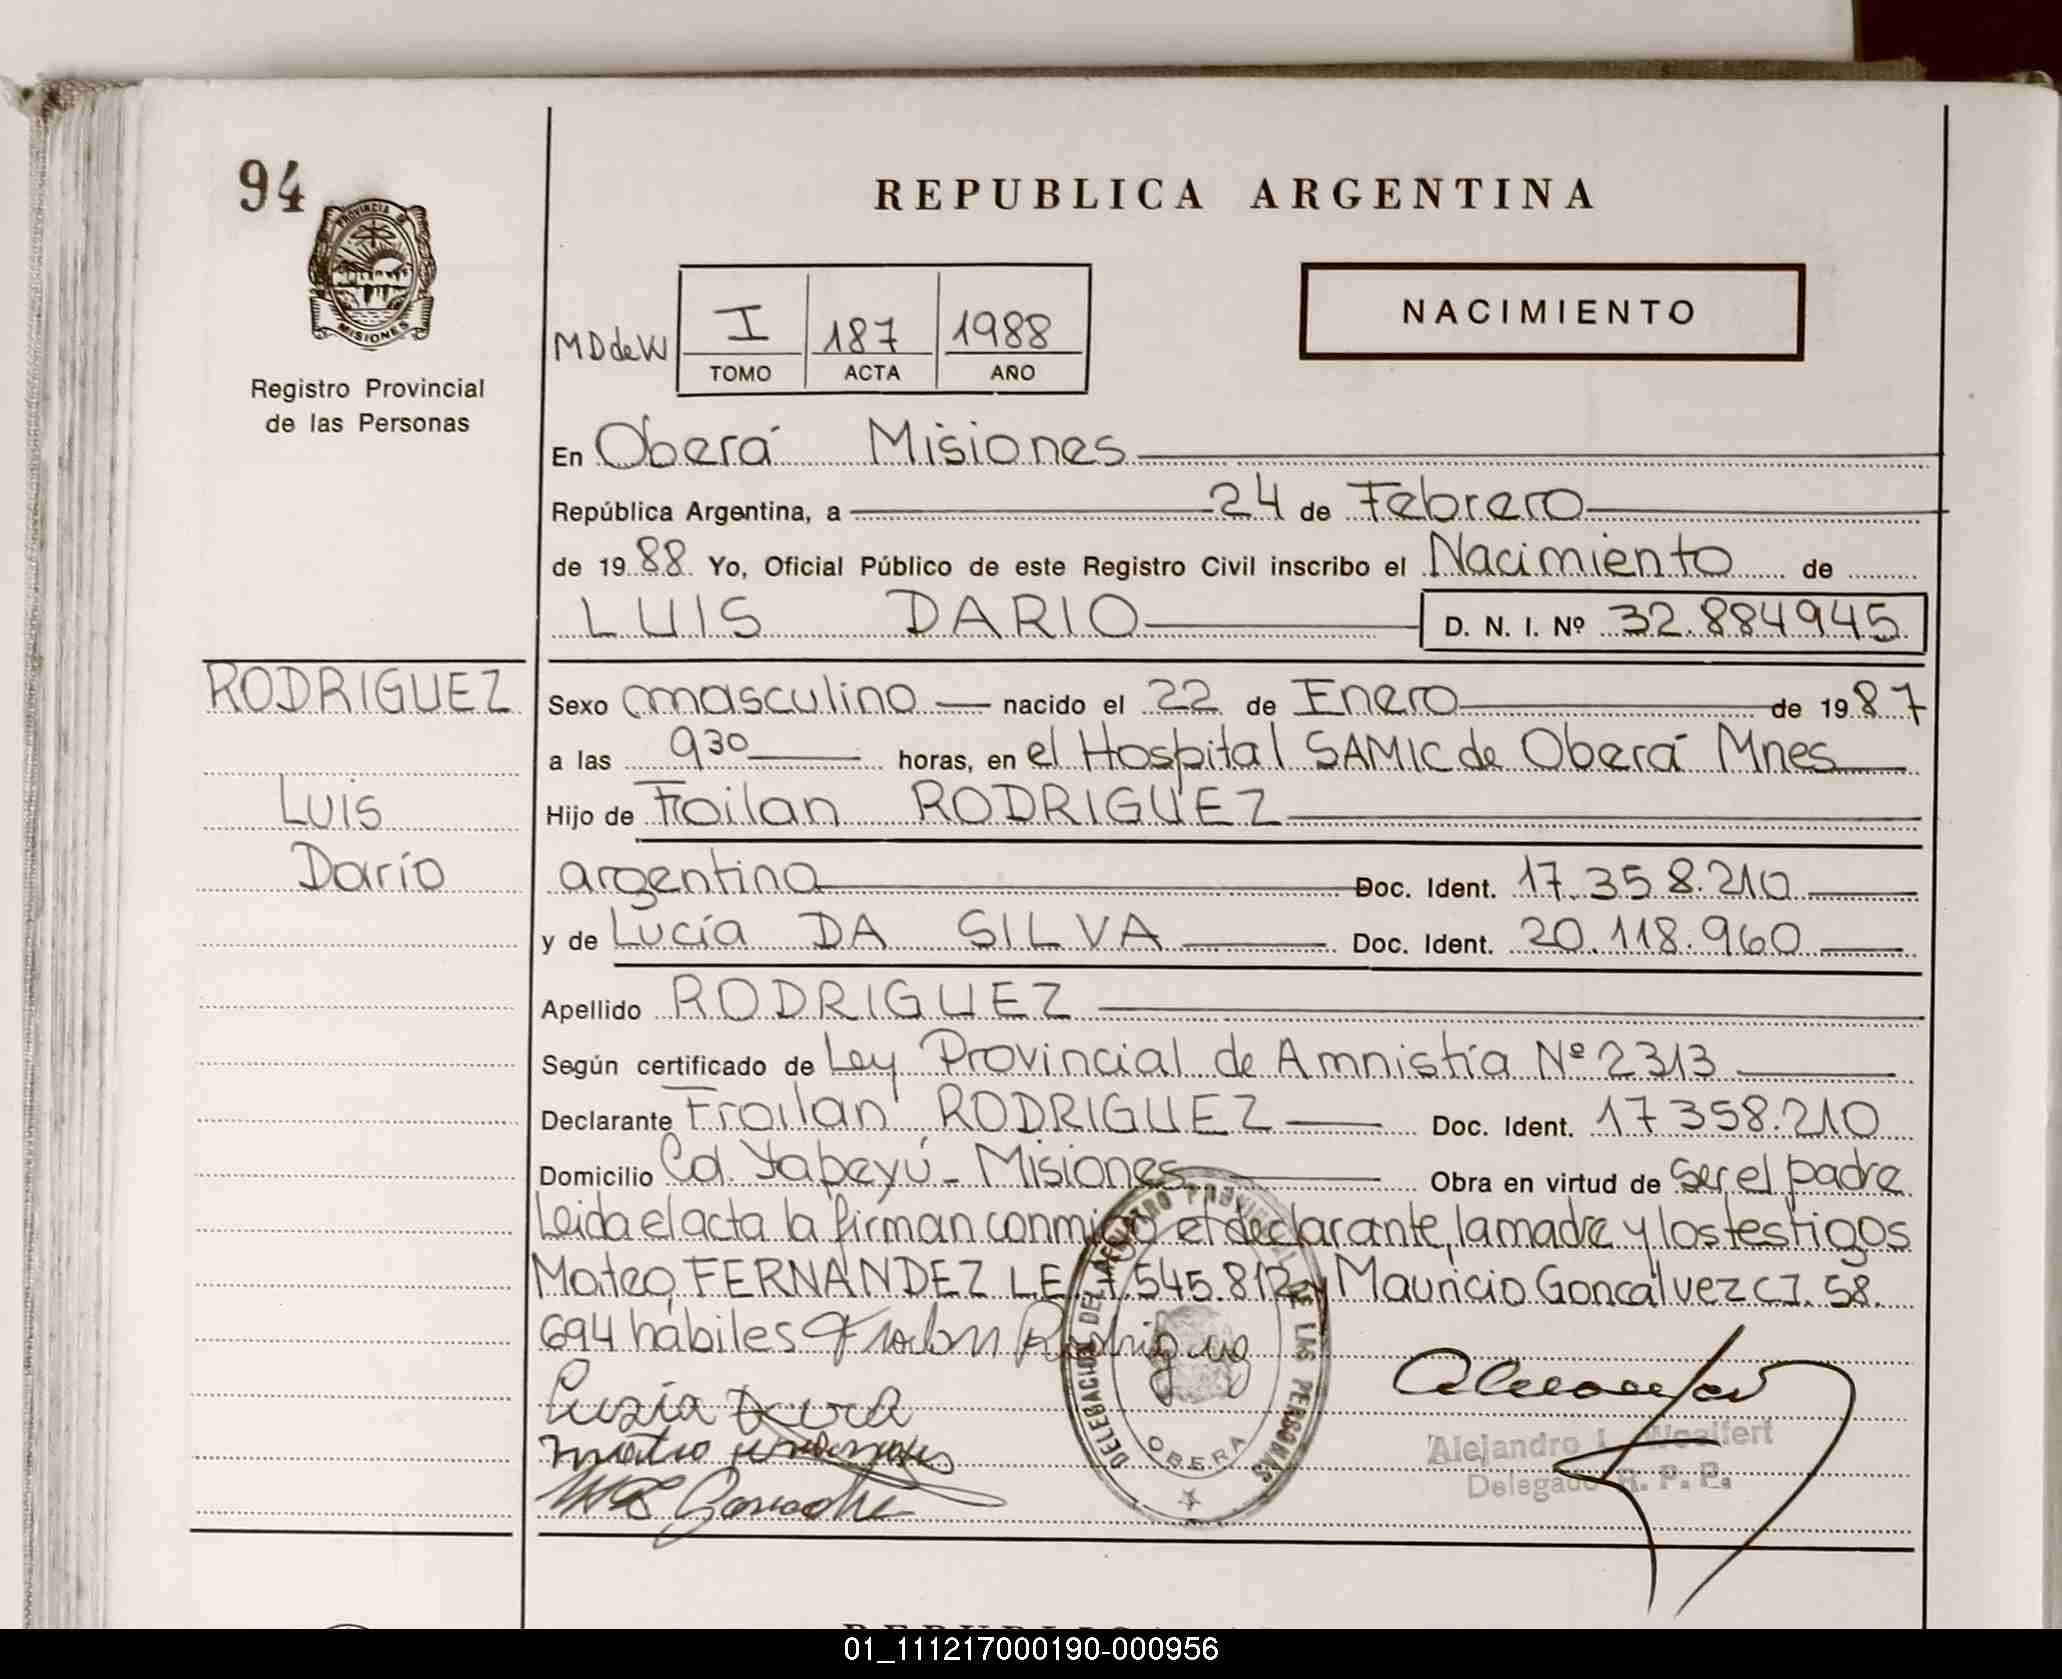 94
PROVINCIA DE
MISIONES
Registro Provincial
de las Personas
REPUBLICA ARGENTINA
NACIMIENTO
MDdeW I 187 1988
TOMO ACTA AÑO
En Oberá Misiones
República Argentina, a 24 de Febrero
de 1988 Yo, Oficial Público de este Registro Civil inscribo el Nacimiento de
LUIS DARIO D. N. I. Nº 32.884945
RODRIGUEZ
Luis
Darío
Sexo masculino nacido el 22 de Enero de 1987
a las 9 30 horas, en el Hospital SAMIC de Oberá Mnes
Hijo de Froilan RODRIGUEZ
argentino Doc. Ident. 17.358.210
y de Lucía DA SILVA Doc. Ident. 20.118.960
Apellido RODRIGUEZ
Según certificado de Ley Provincial de Amnistía Nº 2313
Declarante Froilan RODRIGUEZ Doc. Ident. 17358.210
Domicilio Cd. Yapeyú - Misiones Obra en virtud de ser el padre
Leida el acta la firman conmigo el declarante, la madre y los testigos
Mateo FERNANDEZ L.E. 545.812 y Mauricio Goncalvez C.I. 58.
694 hábiles
DELEGACION DEL REGISTRO PROVINCIAL DE LAS PERSONAS
OBERA
Alejandro
Delegado R. P. P.
01_111217000190-000956